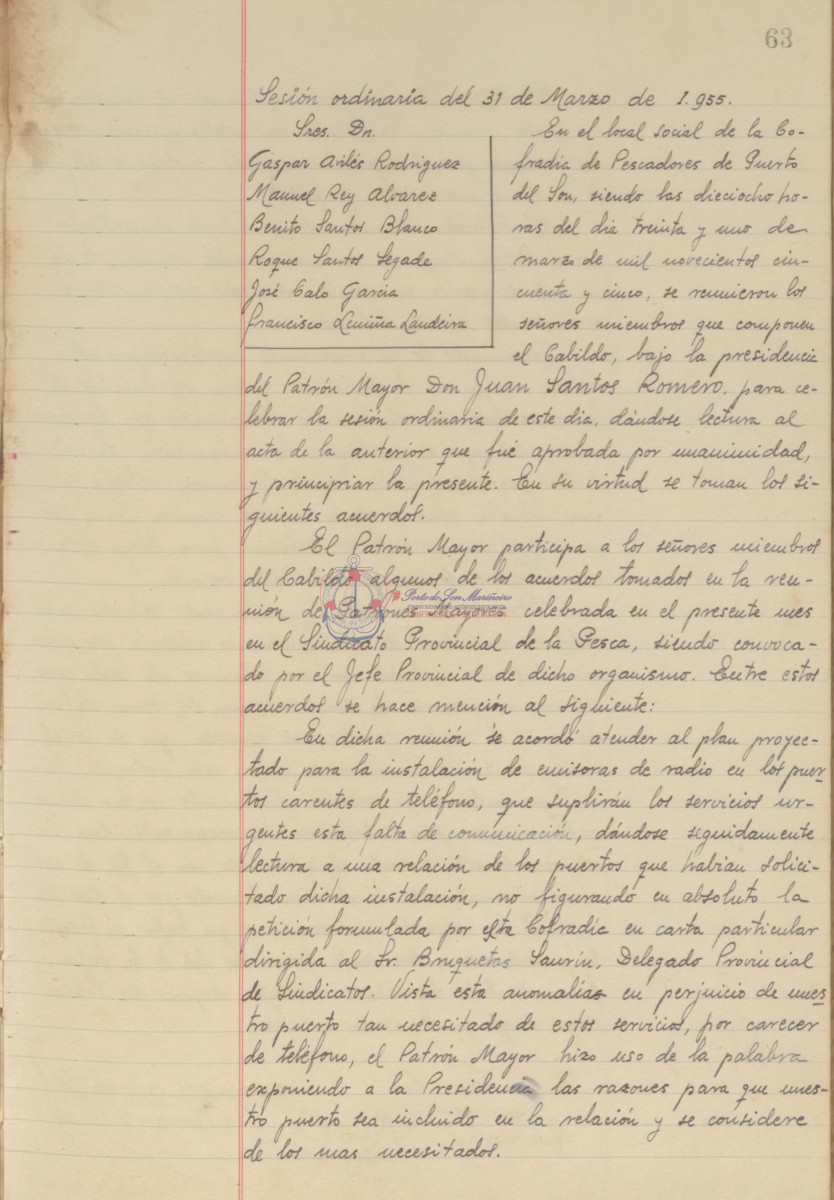 63
Sesión ordinaria del 31 de Marzo de 1.955.
Sres. Dn.
Gaspar Avilés Rodriguez
Manuel Rey Alvarez
Benito Santos Blanco
Roque Santos Segade
José Calo Garcia
Francisco Lruiña Laudeira
En el local social de la Co-
fradía de Pescadores de Puerto
del Son, siendo las dieciocho ho-
ras del dia treinta y uno de
marzo de mil novecientos cin-
cuenta y cinco, se reunieron los
señores miembros que componen
el Cabildo, bajo la presidencia
del Patrón Mayor Don Juan Santos Romero, para ce-
lebrar la sesión ordinaria de este dia, dándose lectura al
acta de la anterior que fué aprobada por unanimidad,
y principiar la presente. En su virtud se toman los si-
guientes acuerdos.
El Patrón Mayor participa a los señores miembros
del Cabildo algunos de los acuerdos tomados en la reu-
nión de Patrones Mayores celebrada en el presente mes
en el Sindicato Provincial de la Pesca, siendo convoca-
do por el Jefe Provincial de dicho organismo. Entre estos
acuerdos se hace mención al siguiente:
En dicha reunión se acordó atender al plan proyec-
tado para la instalación de emisoras de radio en los puer-
tos carentes de teléfono, que suplirán los servicios ur-
gentes esta falta de comunicación, dándose seguidamente
lectura a una relación de los puertos que habian solici-
tado dicha instalación, no figurando en absoluto la
petición formulada por esta Cofradía en carta particular
dirigida al Sr. Bruquetas Saurín, Delegado Provincial
de Sindicatos. Vista esta anomalía en perjuicio de nues-
tro puerto tan necesitado de estos servicios, por carecer
de teléfono, el Patrón Mayor hizo uso de la palabra
exponiendo a la Presidencia las razones para que nues-
tro puerto sea incluido en la relación y se considere
de los mas necesitados.
Porto do Son Mariñeiro